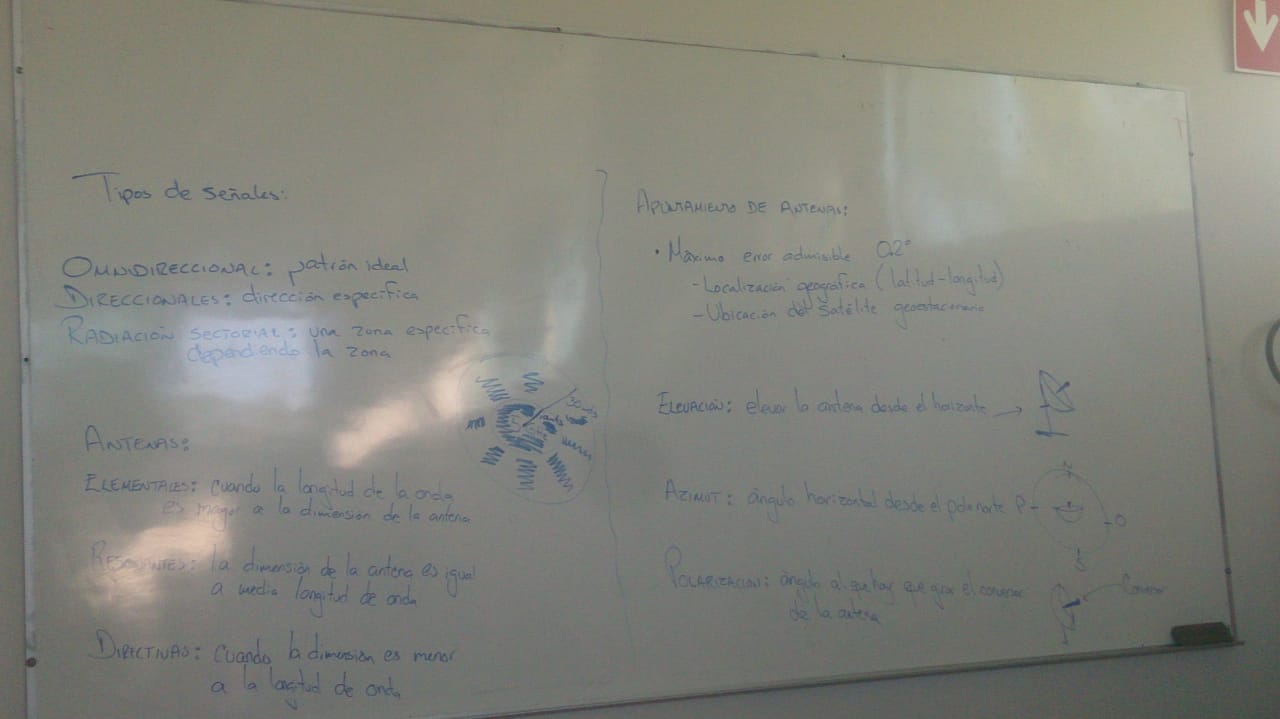 Tipos de señales:
OMNIDIRECCIONAL: patrón ideal
DIRECCIONALES: dirección específica
RADIACIÓN SECTORIAL: una zona específica
dependiendo la zona
ANTENAS:
ELEMENTALES: cuando la longitud de la onda
es mayor a la dimensión de la antena
RESONANTES: la dimensión de la antena es igual
a media longitud de onda
DIRECTIVAS: cuando la dimensión es menor
a la longitud de onda
APUNTAMIENTO DE ANTENAS:
• Máximo error admisible 0.2°
- Localización geográfica (latitud-longitud)
- Ubicación del satélite geoestacionario
ELEVACIÓN: elevar la antena desde el horizonte
AZIMUT: ángulo horizontal desde el polo norte
N
P
O
S
POLARIZACIÓN: ángulo al que hay que girar el conversor
de la antena